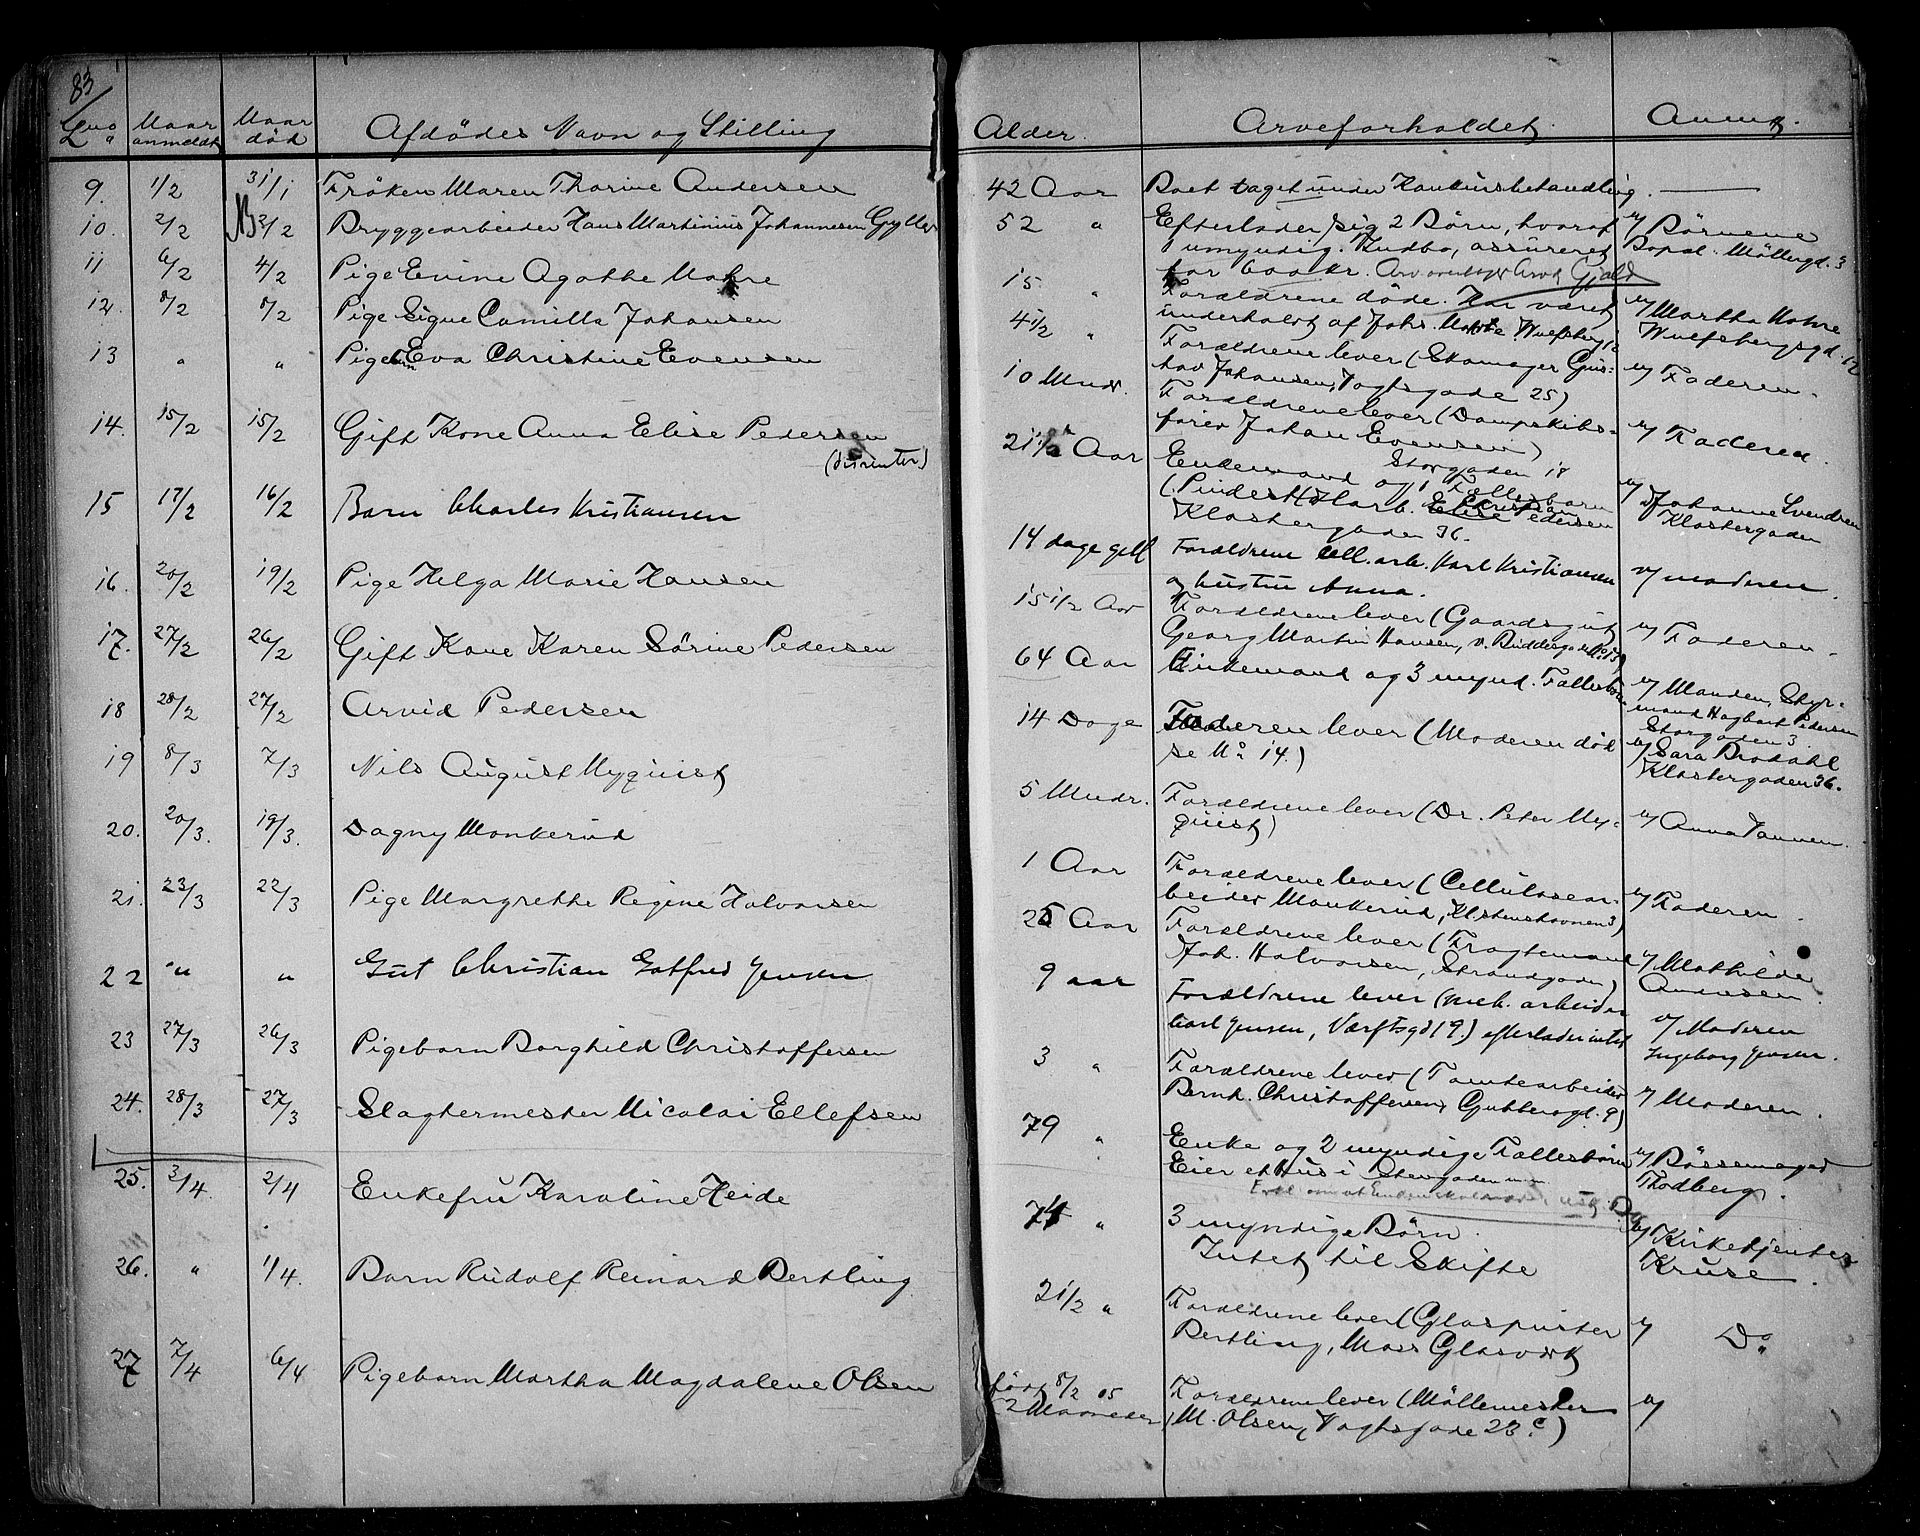 83
No Naar anmeldt Naar død Afdødes Navn og Stilling Alder. Arveforholdet Anm.
9. 1/2 31/1 Frøken Maren Thorine Andersen 42 Aar Boet taget under Konkursbehandling.
10. 2/2 2/2 Bryggearbeider Hans Martinius Johannesen 52 " Efterlader sig 2 Børn, hvoraf v/ Børnene
1 umyndig. Indbo, assureret Møllergd. 3
for 600 kr.
11 6/2 4/2 Pige Evine Agathe Mohre 15 " Forældrene døde. Har været v/ Martha Mohre
underholdt af Johs. Mohre Wulfsbergsgd. 12
12. 8/2 8/2 Pige Signe Camilla Johansen 4 1/2 " Forældrene lever (Skomager Gus-
tav Johansen, Vogtsgade 25) v/ Faderen.
13 " " Pigebn Eva Christine Evensen 10 Mndr. Forældrene lever (Dampskibs-
fører Johan Evensen) v/ Faderen.
Storgaden 18
14. 15/2 15/2 Gift Kone Anna Elise Pedersen 21 1/2 Aar Enkemand og 1 Fællesbarn
(dissenter) Christian Pedersen v/ Johanne Svendsen
Klostergaden 36. Klostergaden
15 17/2 16/2 Barn Charles Kristiansen 14 dage gell Forældrene Cell.arb. Karl Kristiansen
og hustru Anna. v/ moderen.
16. 20/2 19/2 Pige Helga Marie Hansen 15 1/2 Aar Forældrene lever (Gaardsgut
Georg Martin Hansen, v/ Faderen.
17. 27/2 26/2 Gift Kone Karen Sørine Pedersen 64 Aar Enkemand og 3 mynd. Fællesbørn v/ Manden, Styr-
mand Hagbart Pedersen
Storgaden 3.
18 28/2 27/2 Arvid Pedersen 14 Dage Faderen lever (Moderen død v/ Sara Brodahl
se No 14.) Klostergaden 36.
19 8/3 7/3 Nils August Nyquist 5 Mndr. Forældrene lever (Dr. Peter Ny-
quist) v/ Anna
20. 20/3. 19/3. Dagny Monkerud 1 Aar Forældrene lever (Cellulosear-
beider Monkerud, v/ Faderen.
21. 23/3 22/3 Pige Margrethe Regine Halvorsen 25 Aar Forældrene lever (Fragtemand
Joh. Halvorsen, Strandgaden) v/ Mathilde
Andresen.
22 " " Gut Christian Gotfred Jensen 9 aar Forældrene lever (mek. arbeider
Carl Jensen, Værftsgd 19.) efterlader intet v/ Moderen
Ingeborg Jensen.
23 27/3 26/3 Pigebarn Borghild Christoffersen 3 " Forældrene lever (Tomtearbeider
Bernh. Christoffersen, v/ Moderen.
24. 28/3 27/3 Slagtermester Nicolai Ellefsen 79 " Enke og 2 myndige Fællesbørn v/ Bøssemager
Eier et Hus i Storgaden Thodberg.
25. 3/4. 2/4 Enkefru Karoline Heide 74 " 3 myndige Børn. v/ Kirketjener
Intet til Skifte Kruse.
26. " 1/4. Barn Rudolf Reinard Bertling 2 1/2 " Forældrene lever (Glaspuster v/ Do
Bertling, Moss Glasværk
27 7/4 6/4 Pigebarn Martha Magdalene Olsen født 8/2 05 Forældrene lever (Møllemester v/
2 Maaneder M. Olsen, Vogtsgade 23 c)